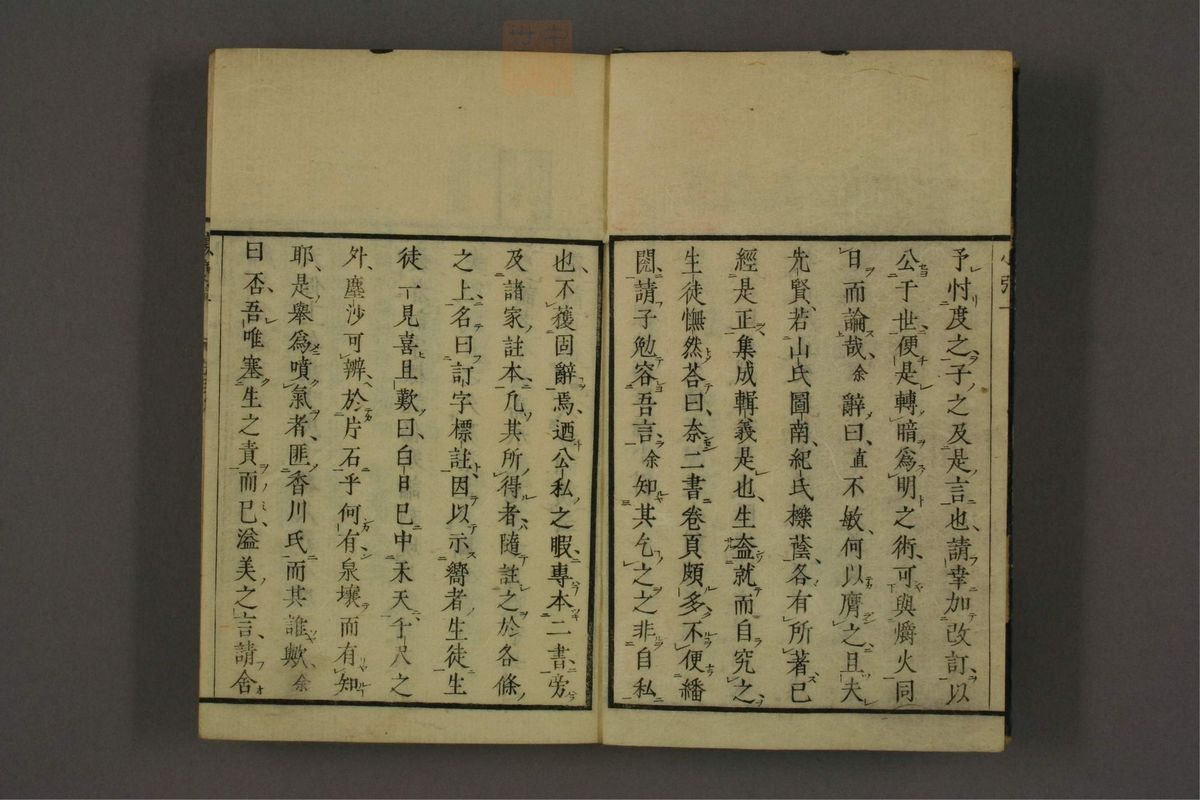 予忖度之子之及是言也請幸加改訂以
公于世便是轉暗爲明之術可與爝火同
日而論哉余辭曰直不敏何以膺之且夫
先賢若山氏圖南紀氏櫟蔭各有所著已
經是正集成輯義是也生盍就而自究之
生徒憮然荅曰奈二書卷頁頗多不便繙
閱請子勉容吾言余知其乞之之非自私
也不獲固辭焉迺公私之暇專本二書旁
及諸家註本凡其所得者隨註之於各條
之上名曰訂字標註因以示嚮者生徒生
徒一見喜且歎曰白日已中禾天千尺之
外塵沙可辨於片石乎何有泉壤而有知
耶是舉爲噴氣者匪香川氏而其誰歟余
曰否吾唯塞生之責而已溢美之言請舍